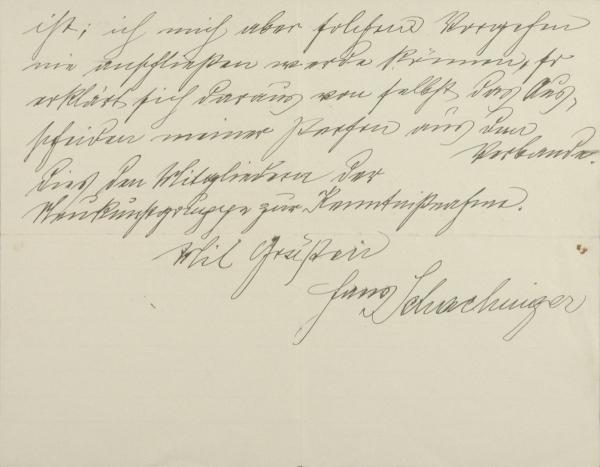 ist; ich mich aber solchem Vorgehen
nie anschließen werde können, so
erklärt sich daraus von selbst das Aus-
scheiden meiner Person aus dem
Verbande.
Dies den Mitgliedern der
Neukunstgruppe zur Kenntnißnahme.
Mit Grüßen
Hans Schachinger